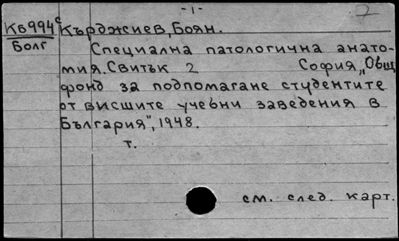 -1-
7
Кв994с Кърджиев, Боян.
Болг
Специална патологична анато-
мия. Свитък 2 София, „Общ
фонд за подпомагане студентите
от висшите учебни заведения в
България", 1948.
т.
см. след. карт.